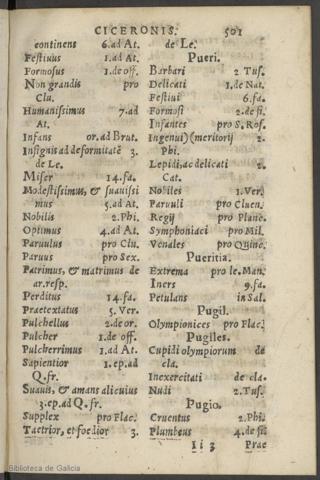 CICERONIS. 501
continens 6.ad At.
Festiuus 1.ad At.
Formosus 1.de off.
Non grandis pro
Clu.
Humanissimus 7.ad
At.
Infans or.ad Brut.
Insignis ad deformitatē 3.
de Le.
Miser 14.fa.
Modestissimus, & suauissi
mus 5.ad At.
Nobilis 2.Phi.
Optimus 4.ad At.
Paruulus pro Clu.
Paruus pro Sex.
Patrimus, & matrimus de
ar.resp.
Perditus 14.fa.
Praetextatus 5. Ver.
Pulchellus 2.de or.
Pulcher 1.de off.
Pulcherrimus 1.ad At.
Sapientior 1.ep.ad
Q.fr.
Suauis, & amans alicuius
3.ep.ad Q.fr.
Supplex pro Flac.
Taetrior, et foedior 3.
de Le.
Pueri.
Barbari 2 Tus.
Delicati 1.de Nat.
Festiui 6.fa.
Formosi 2.de fi.
Infantes pro S.Ros.
Ingenui) (meritorij 2.
Phi.
Lepidi, ac delicati 2.
Cat.
Nobiles 1.Ver.
Paruuli pro Cluen.
Regij pro Planc.
Symphoniaci pro Mil.
Venales pro Quinc.
Pueritia.
Extrema pro le.Man.
Iners 9.fa.
Petulans in Sal.
Pugil.
Olympionices pro Flac.
Pugiles.
Cupidi olympiorum de
cla.
Inexercitati de cla.
Nudi 2.Tus.
Pugio.
Cruentus 2.Phi.
Plumbeus 4.de fi
I i 3 Prae
Biblioteca de Galicia